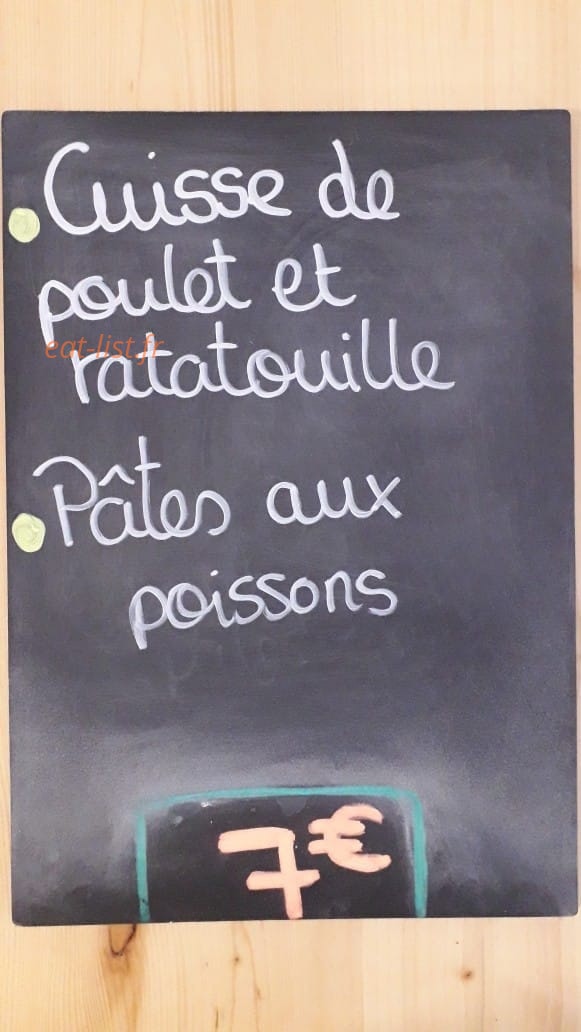 Cuisse de
poulet et
eat-list.fr
ratatouille
Pâtes aux
poissons
7€